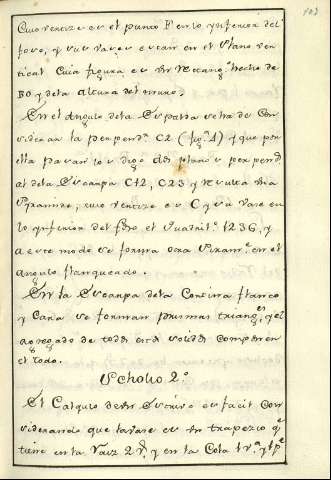 Cuio vertize es el punto F en lo ynferior del
foso, y sus vases estan en el Plano ver
tical Cuia figura es vn Rectang.º hecho de
BO y dela altura del muro.
En el Angulo dela Espalda se ha de Con
siderar la perpend.r C2 (fig.ª 4) y que por
ella pasan los dos planos perpend
al dela Escarpa C12, C23 y Resulta vna
Piramide, cuio vertize es C y su vase en
lo ynferior del foso el Quadril.º 1236, y
a este modo se forma otra Piram.e en el
angulo flanqueado.
En la Escarpa dela Cortina flanco
y Cara se forman prismas triang.es y el
agregado de todos estos solidos componen
el todo.
Scholio 2.º
El Calculo deste es facil Con
siderando que la vase es vn trapezio q.e
tiene en la Raiz 2 y en la Cola 1